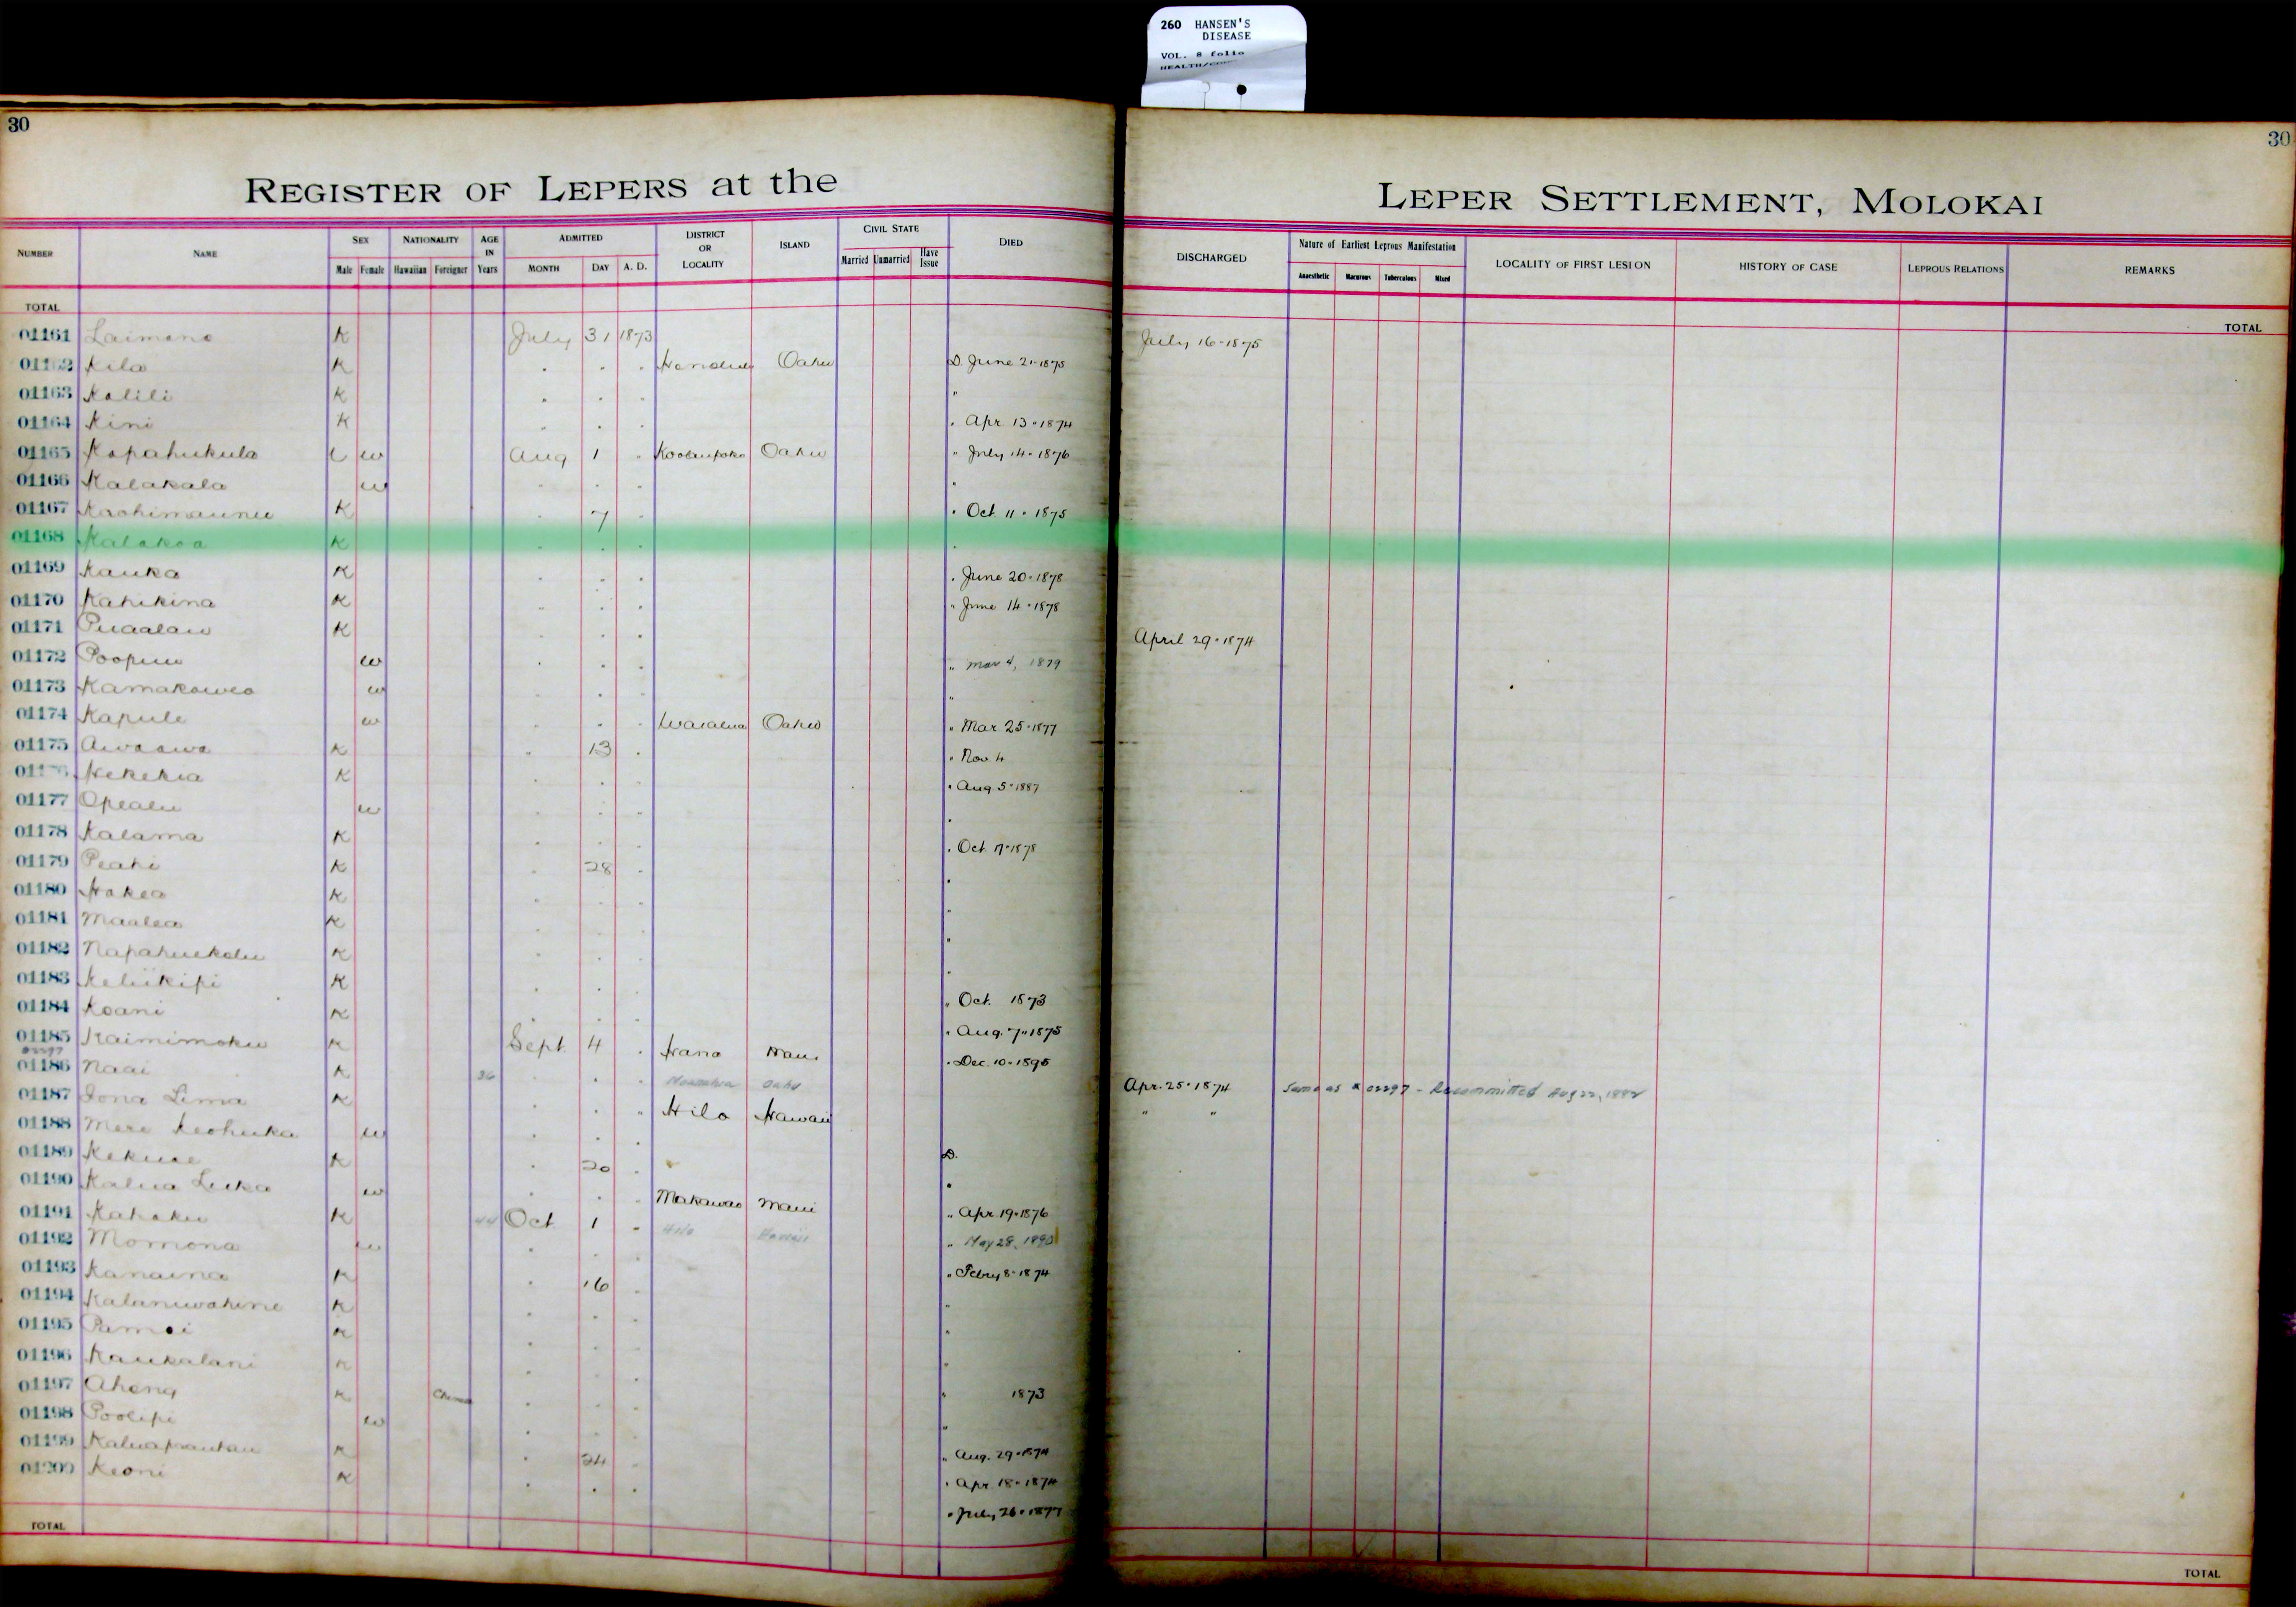 260 HANSEN'S
DISEASE
VOL. 8 folio
30
30
REGISTER OF LEPERS at the
LEPER SETTLEMENT, MOLOKAI
NUMBER NAME SEX NATIONALITY AGE IN ADMITTED DISTRICT OR LOCALITY ISLAND CIVIL STATE DIED
Male Female Hawaiian Foreigner Years MONTH DAY A. D. Married Unmarried Have Issue
DISCHARGED Nature of Earliest Leprous Manifestation LOCALITY OF FIRST LESION HISTORY OF CASE LEPROUS RELATIONS REMARKS
Anaesthetic Macurous Tuberculous Mixed
TOTAL
TOTAL
01161 Laimana K July 31 1873 July 16-1875
Kila K . . . Honolulu Oahu D. June 21-1875
01163 Kalili K . . . "
01164 Kini K . . . . Apr. 13-1874
01165 Kapahukula w Aug 1 . Koolaupoko Oahu " July 14-1876
01166 Kalakala w . . . .
01167 K . 7 . . Oct. 11-1875
01168 Kalakoa K . . . .
01169 Kauka K . . . . June 20-1878
01170 Kahikina K . . . " June 14-1878
01171 Puaalau K . . . April 29-1874
01172 w . . . " Mar 4, 1879
01173 w . . . "
01174 Kapule w . . . Waialua Oahu " Mar. 25-1877
01175 Awaawa K . 13 . . Nov. 4
Kekekia K . . . . Aug 5-1887
01177 Opealu w . . . .
01178 Kalama K . . . . Oct. 17-1878
01179 Peahi K . 28 . .
01180 Hakea K . . . .
01181 Maalea K . . . .
01182 Napahuekolu K . . . .
01183 Keliikipi K . . . " Oct. 1873
01184 Koani K . . . . Aug. 7-1875
01185 Kaimimoku K Sept 4 . Hana Maui . Dec. 10-1895
01186 Naai K 36 . . . Oahu Apr. 25-1874 Same as # 02297 - Recommitted Aug 22, 1882
01187 Iona Lima K . . " Hilo Hawaii " "
01188 Mere Keohuka w . . .
01189 Kekuae K . 20 . D.
01190 Kalua Luka w . . . Makawao Maui .
01191 Kahaku K 44 Oct 1 . Hilo Hawaii " Apr. 19-1876
01192 Momona w . . . " May 28, 1890
01193 Kanaina K . 16 . " Febry 8-1874
01194 Kalaniwahine K . . . "
01195 K . . . "
01196 Kaukalani K . . . "
01197 Aheng K . . . " 1873
01198 Poolipi w . . . "
01199 K . 24 . " Aug. 29-1874
01200 Keoni K . . . . Apr. 18-1874
. July 26-1877
TOTAL
TOTAL